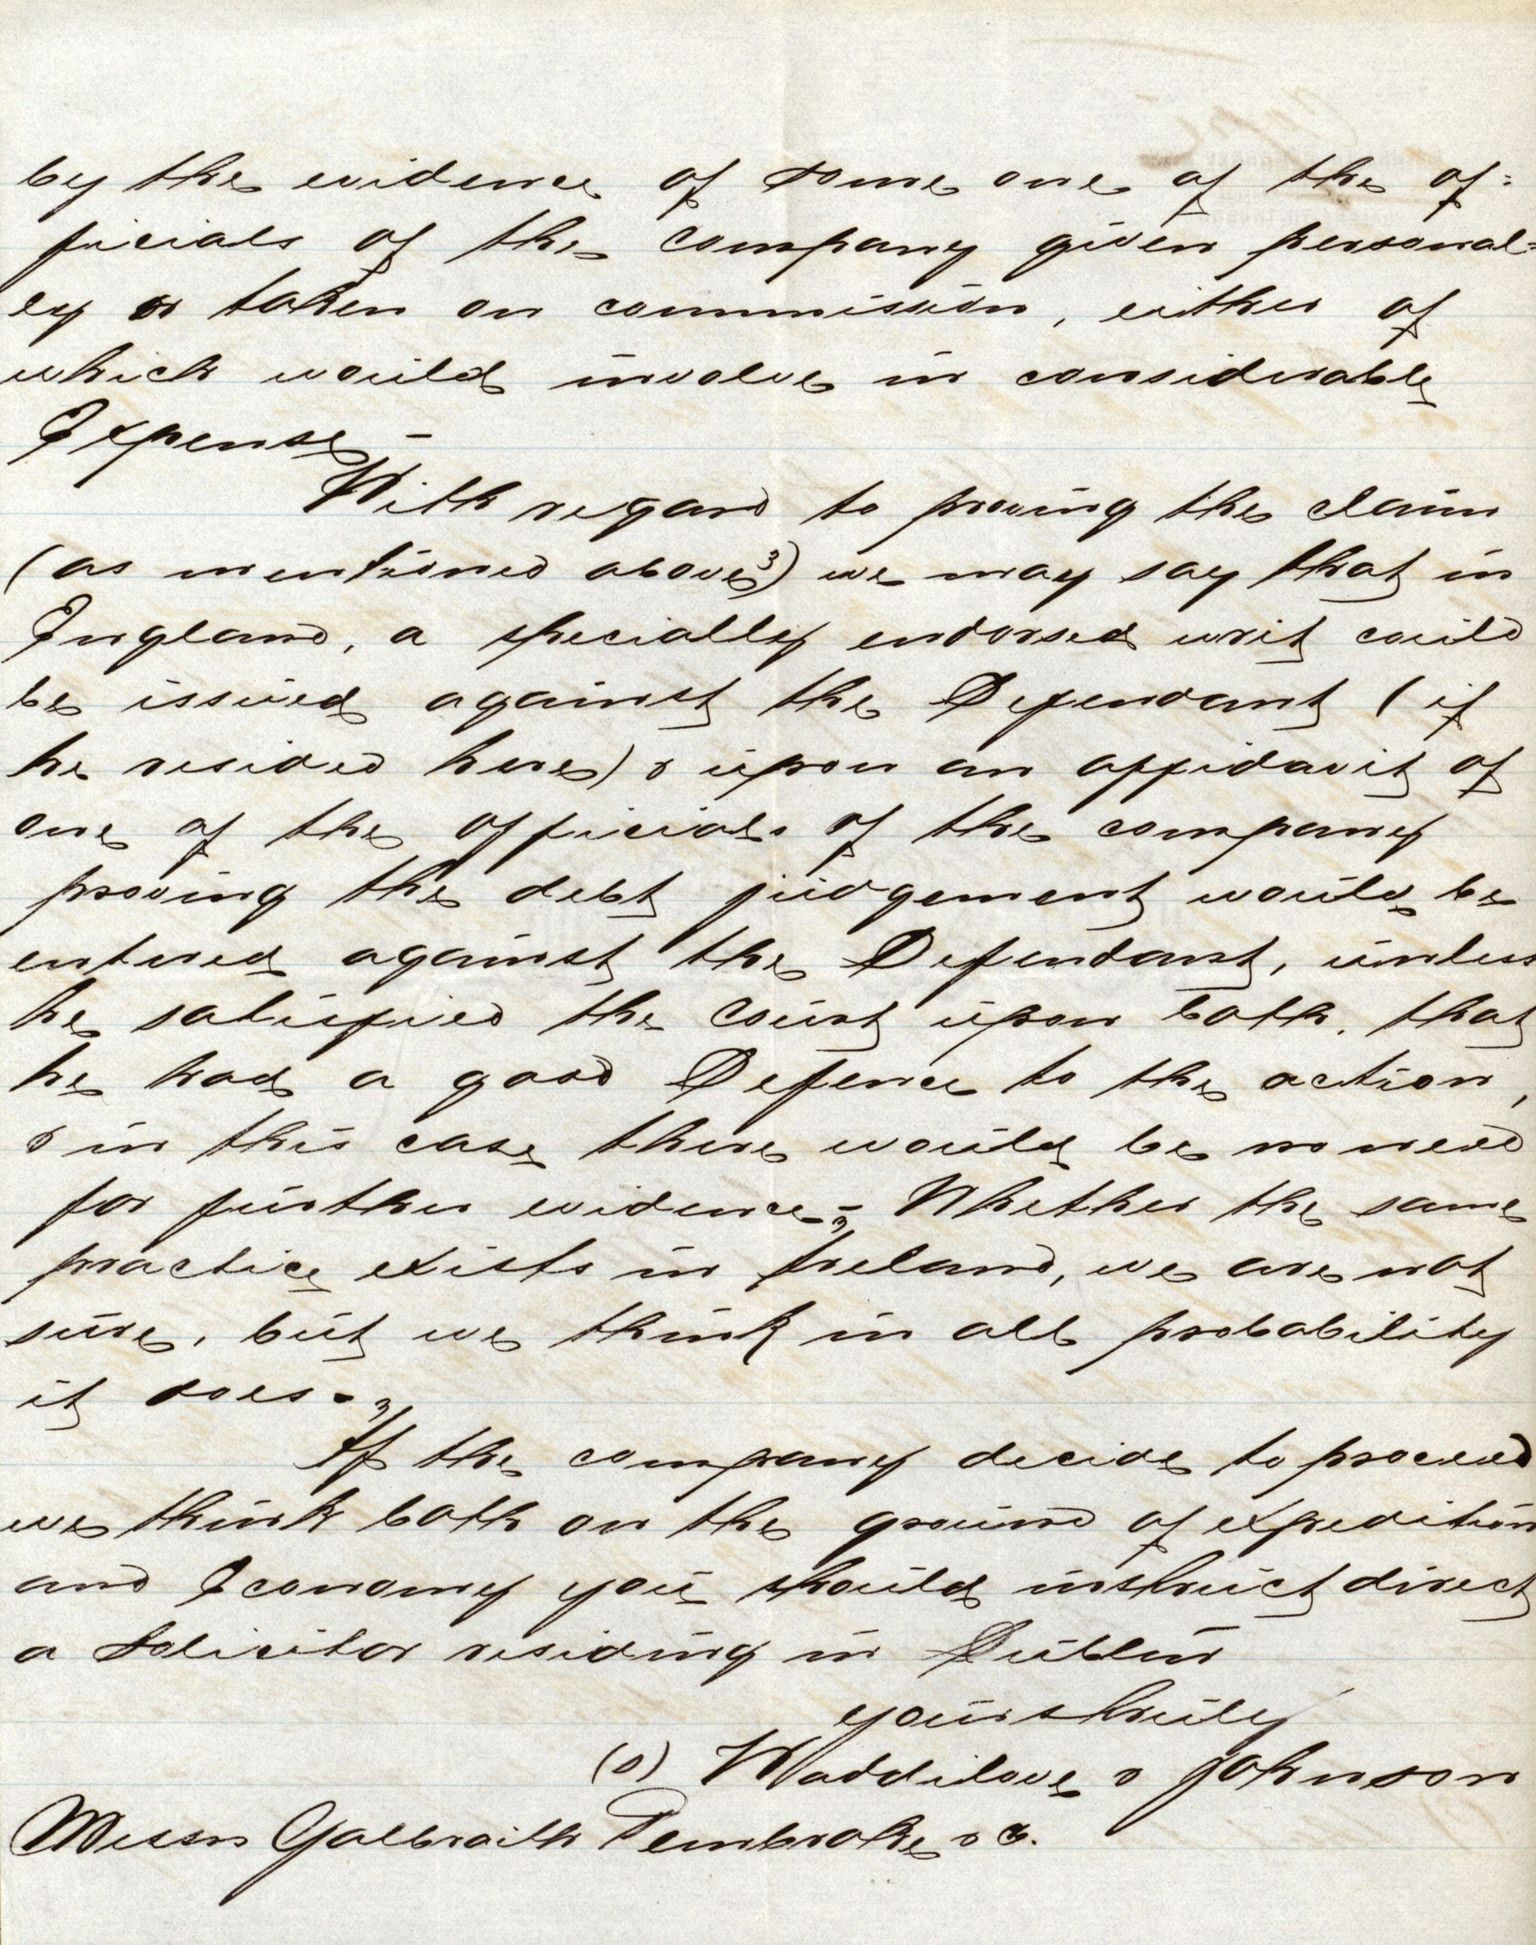 by the evidence of some one of the of=
ficials of the company given personal=
ly or taken on commission, either of
which would involve in considerable
Expense –
With regard to proving the claim
(as mentioned above) we may say that in
England, a specially endorsed writ could
be issued against the Defendant (if
he resided here) & upon an affidavit of
one of the officials of the company
proving the debt judgement would be
entered against the Defendant, unless
he satisfied the court upon oath, that
he had a good Defence to the action,
& in this case there would be no need
for further evidence – Whether the same
practice exists in Ireland, we are not
sure, but we think in all probability
it does –
If the company decide to proceed
we think both on the ground of expedition
and Economy you should instruct direct
a Solicitor residing in Dublin
yours truly
(s) Waddilove & Johnson
Messrs Galbraith Pembroke & Co.